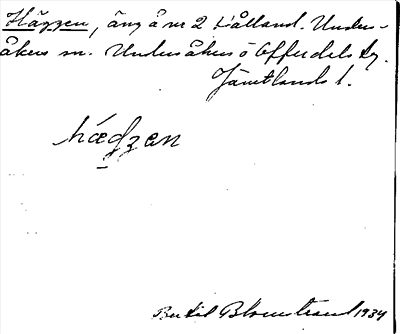 Häggen, äng å nr 2 Hålland. Under-
åkers sn. Undersåkers o Offerdals tg.
Jämtlands l.
hædzen
Bertil Blomstrand 1934